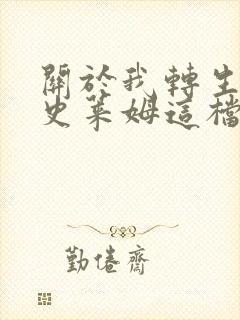 關於我轉生
史萊姆這檔
勤倦齋